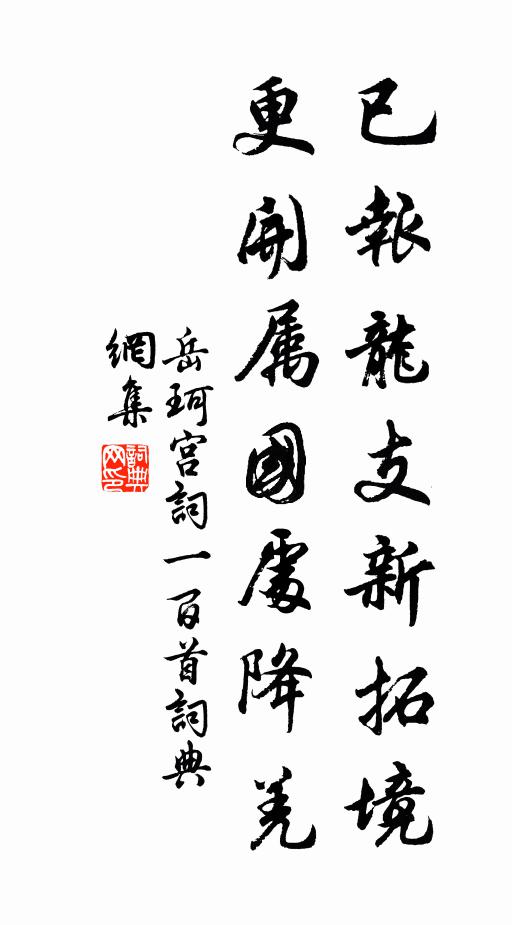 已報龍支新拓境
更開属國處降羌
岳珂宮詞一百首詞典
網集
詞典网印